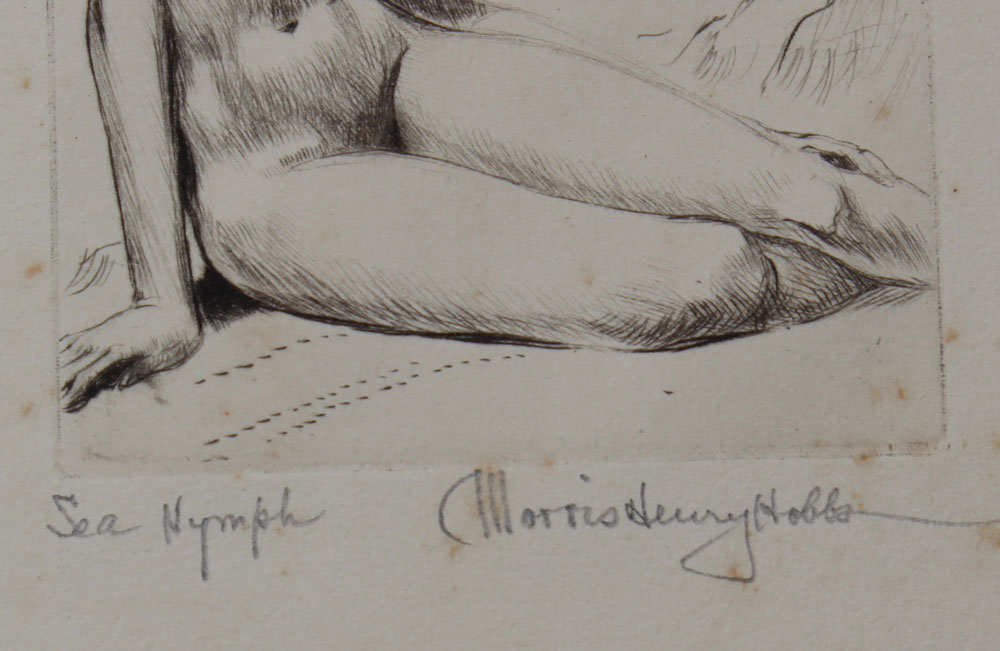 Sea Nymph MorrisHenryHobbs